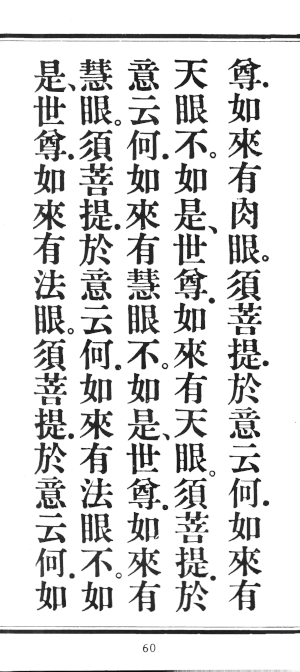 尊.如來有肉眼。須菩提.於意云何.如來有
天眼不。如是、世尊.如來有天眼。須菩提.於
意云何.如來有慧眼不。如是、世尊.如來有
慧眼。須菩提.於意云何.如來有法眼不。如
是、世尊.如來有法眼。須菩提.於意云何.如
60